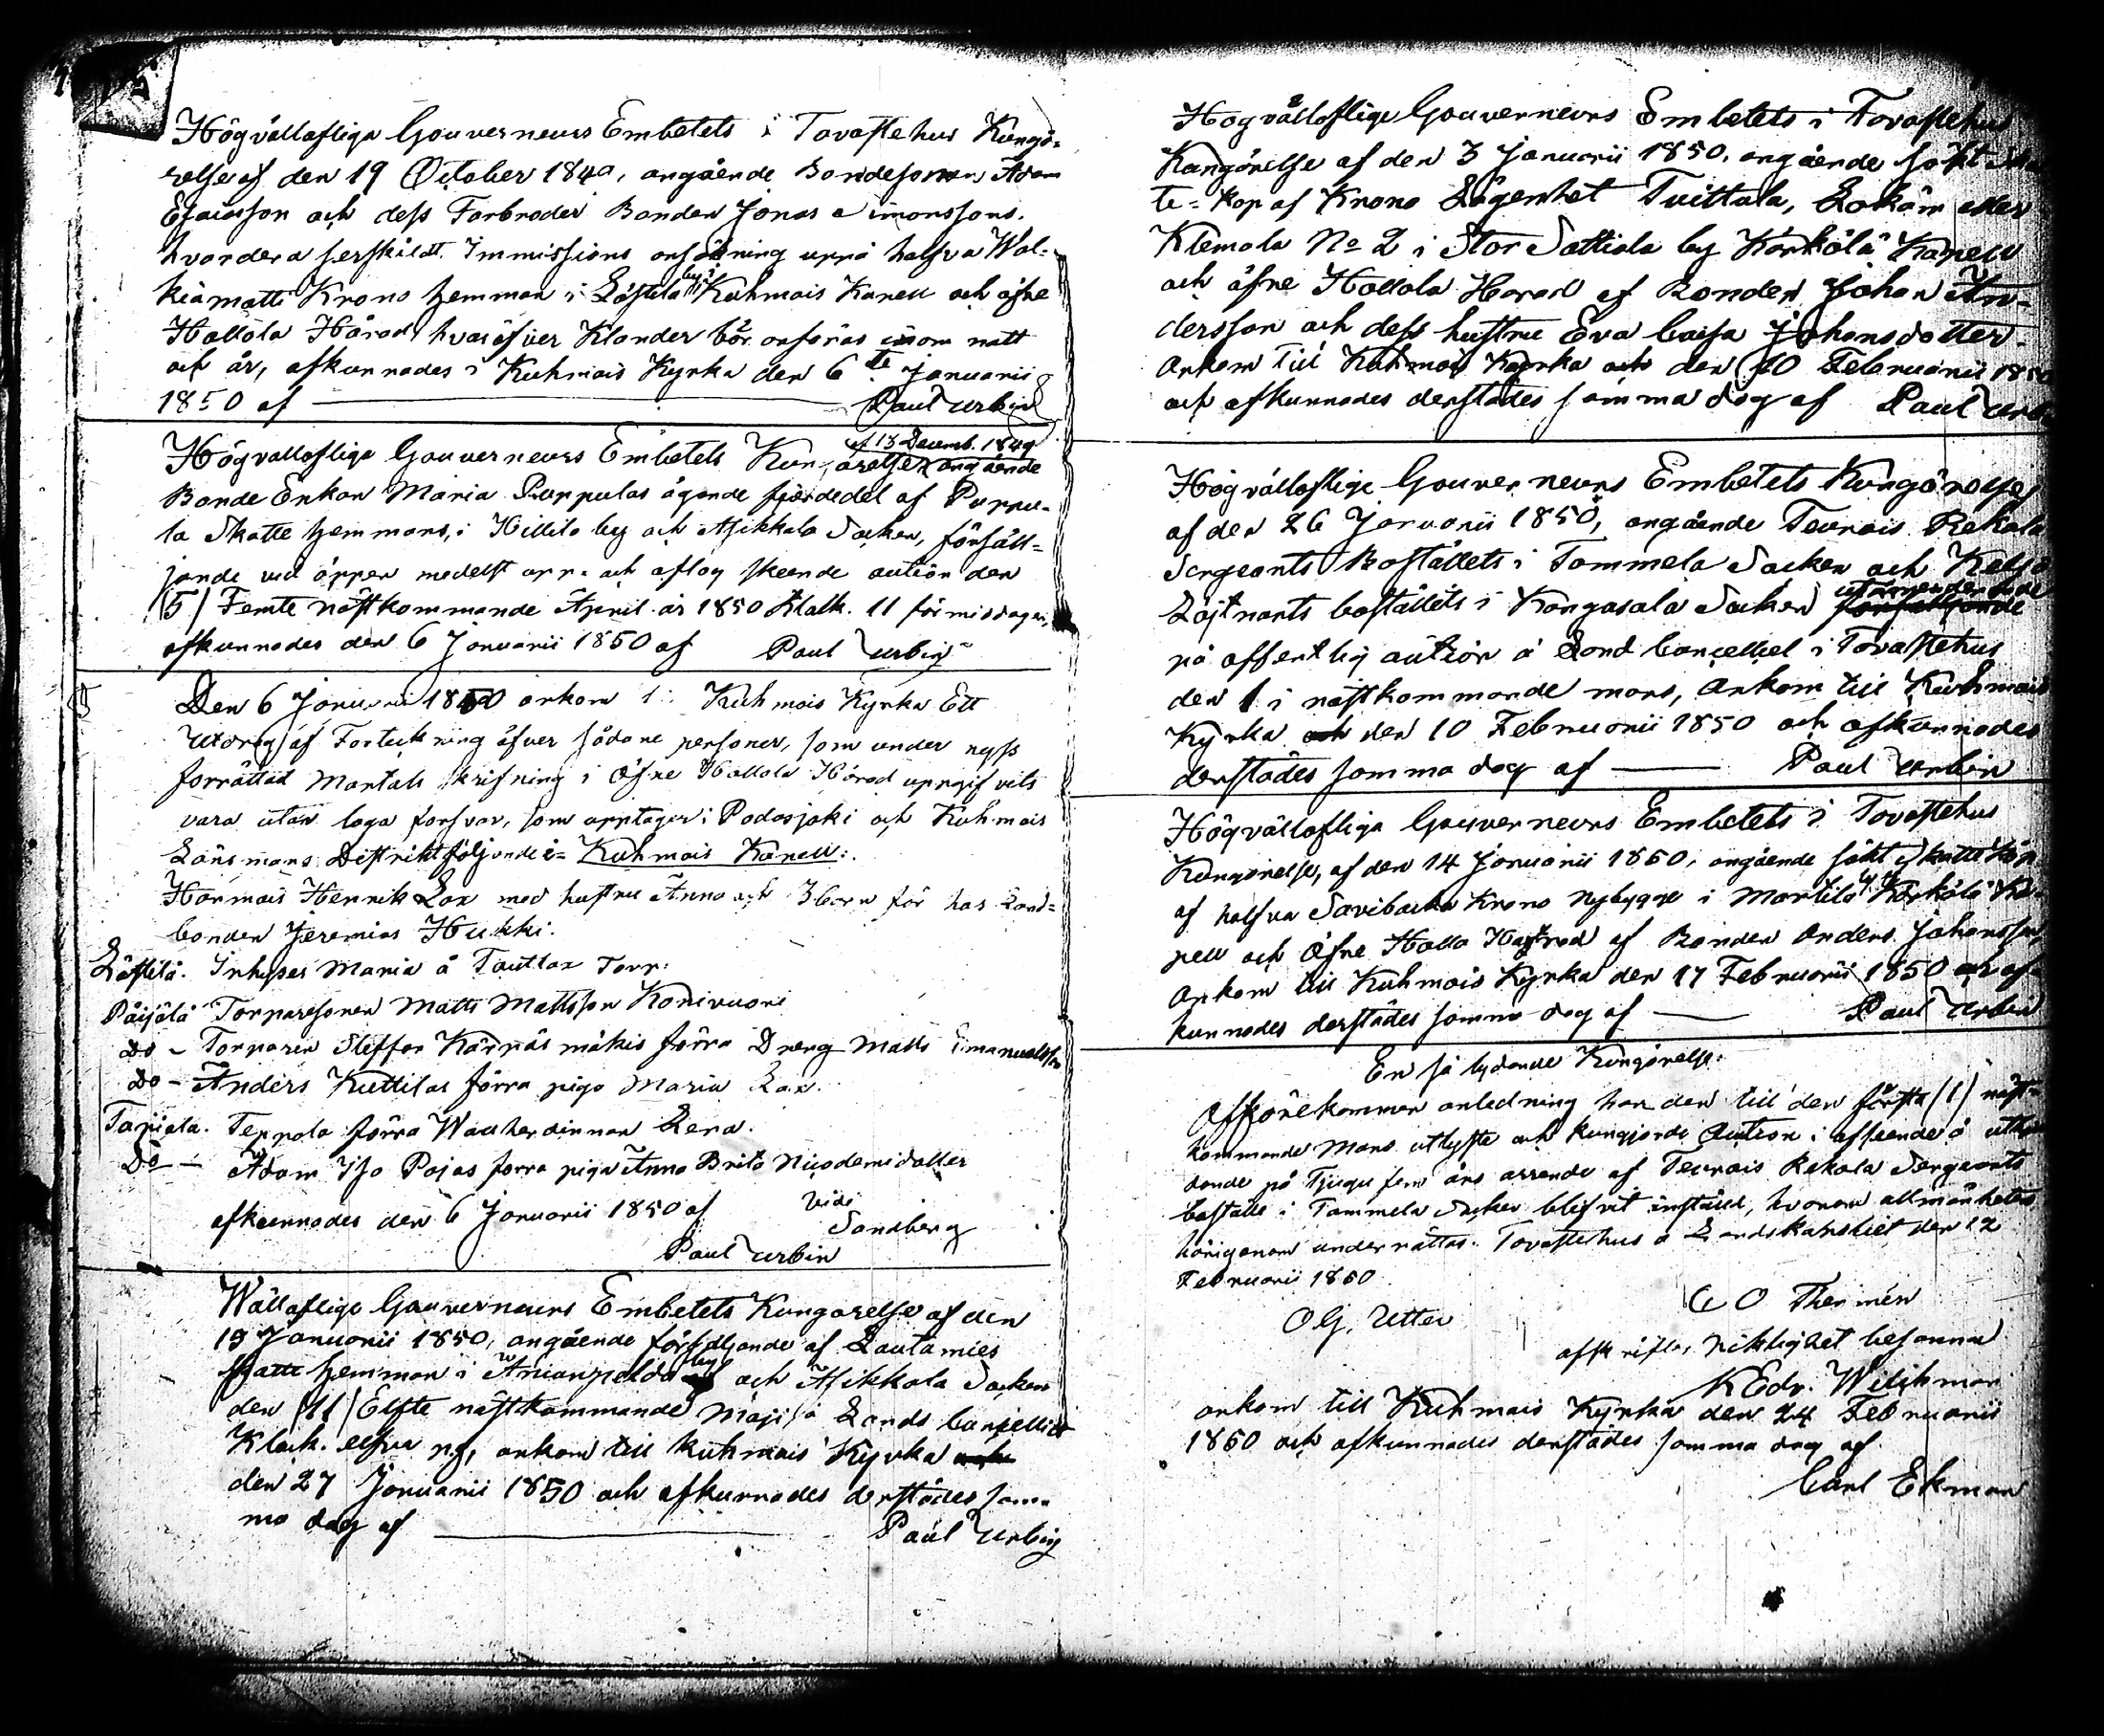 Högvällofliga Gouverneurs Embetets i Tavastehus Kungö-
relse af den 19 October 1849, angående Bondesonen Adam
Esaiasson och dess Farbroder Bonden Jonas Simonssons
hvardera serskildt Immissions ansökning uppå halfva Wal-
kiamatti Krono hemman i Löstilä by i Kuhmois Kapell och öfre
Hollola Härad, hvaröfver Klander bör anföras inom natt
och år, afkunnades i Kuhmois Kyrka den 6te Januarii
1850 af — Paul Urbin
Högvällofliga Gouverneurs Embetets Kungörelse af 13 Decemb. 1849 angående
Bonde Enkan Maria Puppulas ägande fjerdedel af Puppu-
la Skatte hemmans, i Hillilä by och Asikkala Socken, försäll-
jande vid öppen medelst opp- och afslag skeende auction den
(5) Femte nästkommande April år 1850 Klock. 11 förmiddagen,
afkunnades den 6 Januarii 1850 af Paul Urbin
Den 6 Januarii 1850 ankom till Kuhmois Kyrka Ett
Utdrag af Forteckning öfver sådane personer, som under nyss
forrättad Mantals skrifning i Öfre Hollola Härad uppgifvits
vara utan laga forsvar, som upptager i Padasjoki och Kuhmois
Länsmans Distrikt följande i Kuhmois Kapell:
Harmois Henrik Lax med hustru Anna och 3 barn för hos Land-
bonden Jeremias Hukki.
Löstilä. Inhyses Maria å Touttax Torp:
Päijälä Torparesonen Matts Mattsson Konivuori
Do – Torparen Steffan Kärpäs mäkis förra Dreng Matts Emanuelsson
Do – Anders Kuttilas förra piga Maria Lax.
Tapiala. Teppola förra Wallherdinnan Lena.
Do – Adam Iso Pajas forra piga Anna Brita Nicodemidotter
afkunnades den 6 Januarii 1850 af Vidi
Sandberg
Paul Urbin
Wällofliga Gouverneurs Embetets Kungörelse af den
19 Januarii 1850, angående försäljande af Lautamies
skatte hemman i Anianpelda by och Asikkala Socken
den (11) Elfte nästkommande Maji å Lands Cancelliet
Klock. elfva fm, ankom till Kuhmois Kyrka och
den 27 Januarii 1850 och afkunnades derstädes sam-
ma dag af — Paul Urbin
Högvällofliga Gouverneurs Embetets i Tavastehus
Kungörelse af den 3 Januarii 1850, angående sökt Skat-
te-köp af Krono Lägenhet Tuittula, eller
Klemola No 2 i Stor Sattiala by Kärkölä Kapell
och öfre Hollola Härad af Bonden Johan An-
dersson och dess hustru Eva Caisa Johansdotter.
Ankom till Kuhmois Kyrka och den 10 Februarii 1850
och afkunnades derstädes samma dag af Paul Urbin
Högvällofliga Gouverneurs Embetets Kungörelse
af den 26 Januarii 1850, angående Teurois Rekola
Sergeants Boställets i Tammela Socken och
Löjtnants boställets i Kangasala Socken utarrenderande försälljande
på offentlig auction å Land Cancelliet i Tavastehus
den 1 i nästkommande mars, Ankom till Kuhmois
Kyrka och den 10 Februarii 1850 och afkunnades
derstädes samma dag af — Paul Urbin
Högvällofliga Gouverneurs Embetets i Tavastehus
Kungörelse, af den 14 Januarii 1850, angående sökt skatte köp
af halfva Savibacka Krono Nybygge i Martila by Kärkölä Ka-
pell och Öfre Hollo Härad af Bonden Anders Johansson,
Ankom till Kuhmois Kyrka den 17 Februarii 1850 och af-
kunnades derstädes samma dag af — Paul Urbin
En så lydande Kungörelse:
Afförekommen anledning har den till den första (1) näst-
kommande Mars utlyste och kungjorde Auction i afseende å utbju-
dande på Tjugu fem års arrende af Teurois Rekola Sergeants
boställe i Tammela Socken blifvit instäld, hvarom allmänheten
härigenom underrättas. Tavastehus å Landskansliet den 12
Februarii 1850.
C O Thermén
O G. Utter
afskriftens riktighet besannar
K Edv. Wilchman
ankom till Kuhmois Kyrka den 24 Februarii
1850 och afkunnades derstädes samma dag af
Carl Ekman